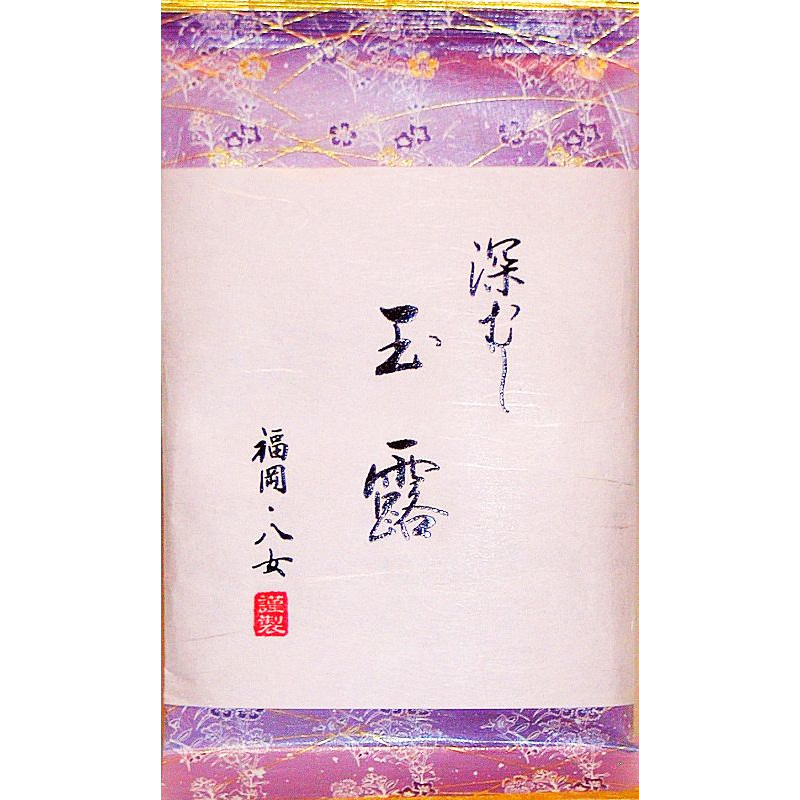 深むし
玉露
福岡・八女
謹製